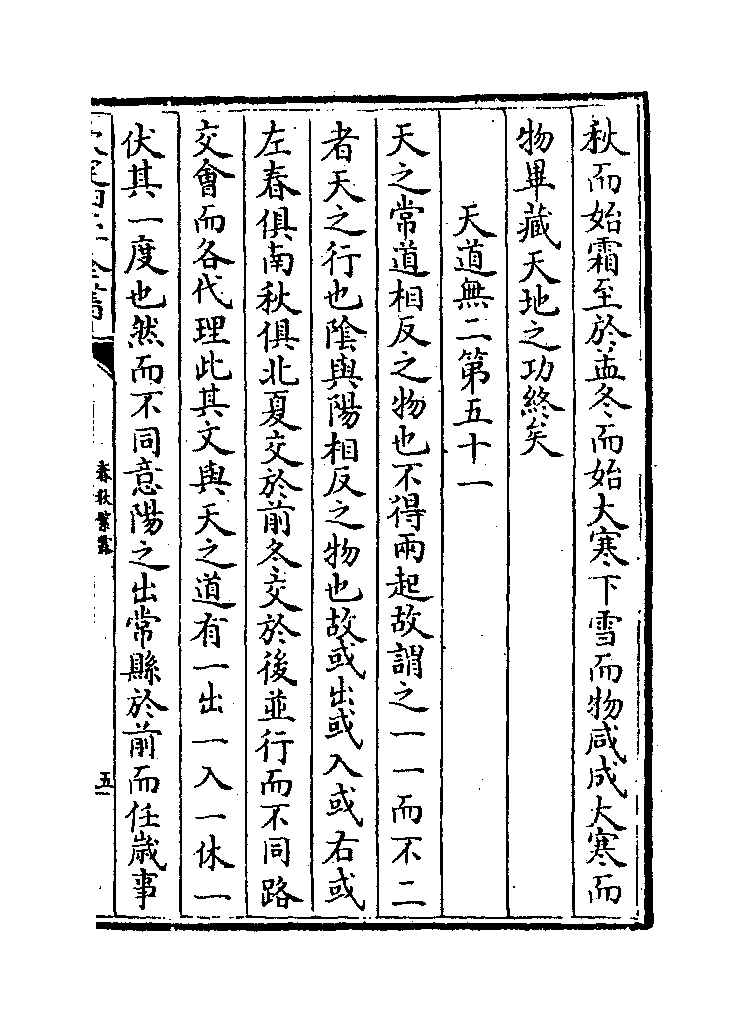 秋而始霜至於孟冬而始大寒下雪而物咸成大寒而
物畢藏天地之功終矣
天道無二第五十一
天之常道相反之物也不得兩起故謂之一一而不二
者天之行也陰與陽相反之物也故或出或入或右或
左春俱南秋俱北夏交於前冬交於後並行而不同路
交會而各代理此其文與天之道有一出一入一休一
伏其一度也然而不同意陽之出常縣於前而任歳事
春秋繁露
五